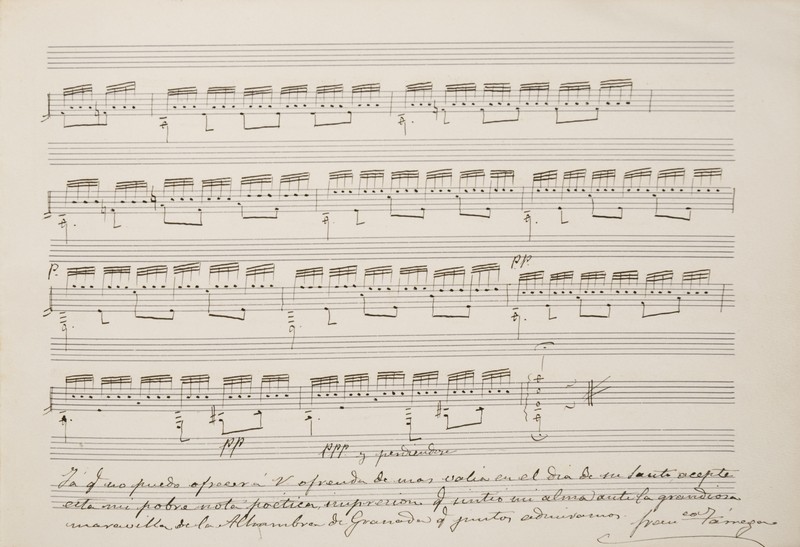 p.
pp
pp
ppp y perdiendose
Ya q. no puedo ofrecer á V ofrenda de mas valia en el dia de su Santo acepte
esta mi pobre nota poética, impresion q. sintió mi alma ante la grandiosa
maravilla de la Alhambra de Granada q. juntos admiramos. Fran.co Tárrega